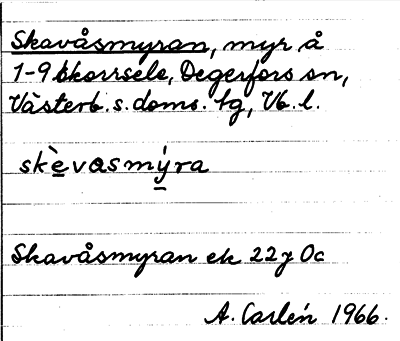 Skavåsmyran, myr å
1-9 Skorrsele, Degerfors sn,
Västerb. s. doms. lg, Vb. l.
skèvasmýra
Skavåsmyran ek 22 j 0c
A. Carlén 1966.